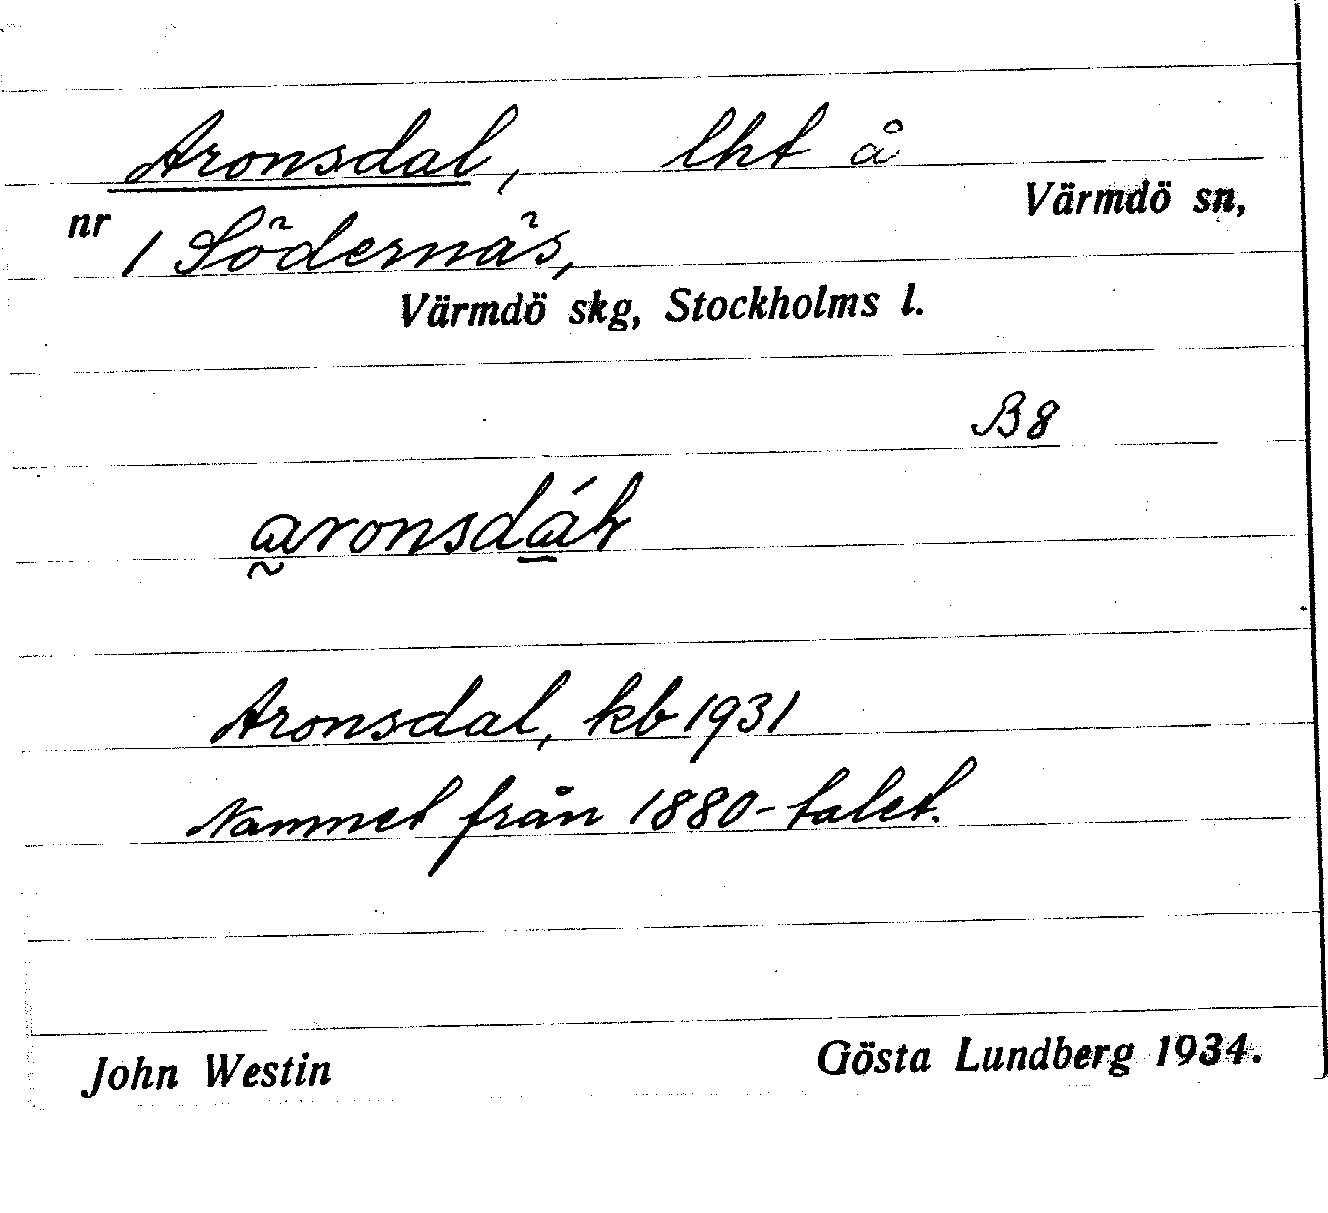 Aronsdal, lht å
Värmdö sn,
nr 1 Södernäs,
Värmdö skg, Stockholms l.
B8
Aronsdal, kb 1931
Namnet från 1880-talet.
John Westin Gösta Lundberg 1934.